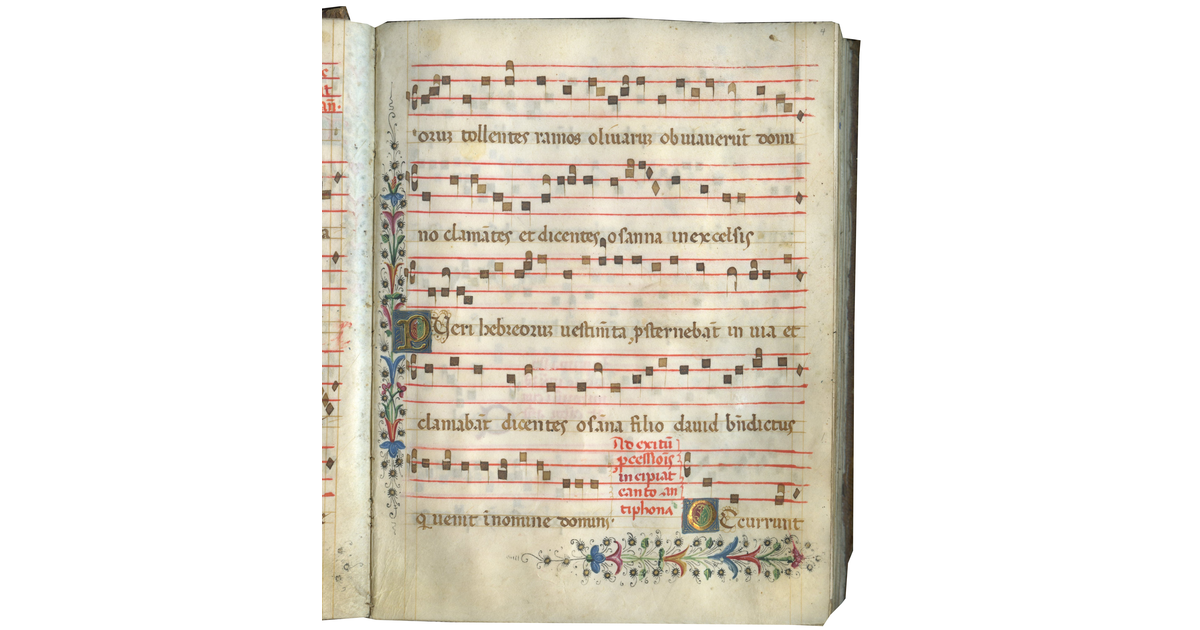 orum tollentes ramos olivarum obviaverūt domi
no clamātes et dicentes osanna in excelsis
Pueri hebreorum vestim̄ta psternebāt in via et
clamabāt dicentes osāna filio david bn̄dictus
qui venit ī nomine domini
Ad exitū
pcessiōis
incipiat
cantor an
tiphona
Occurrunt